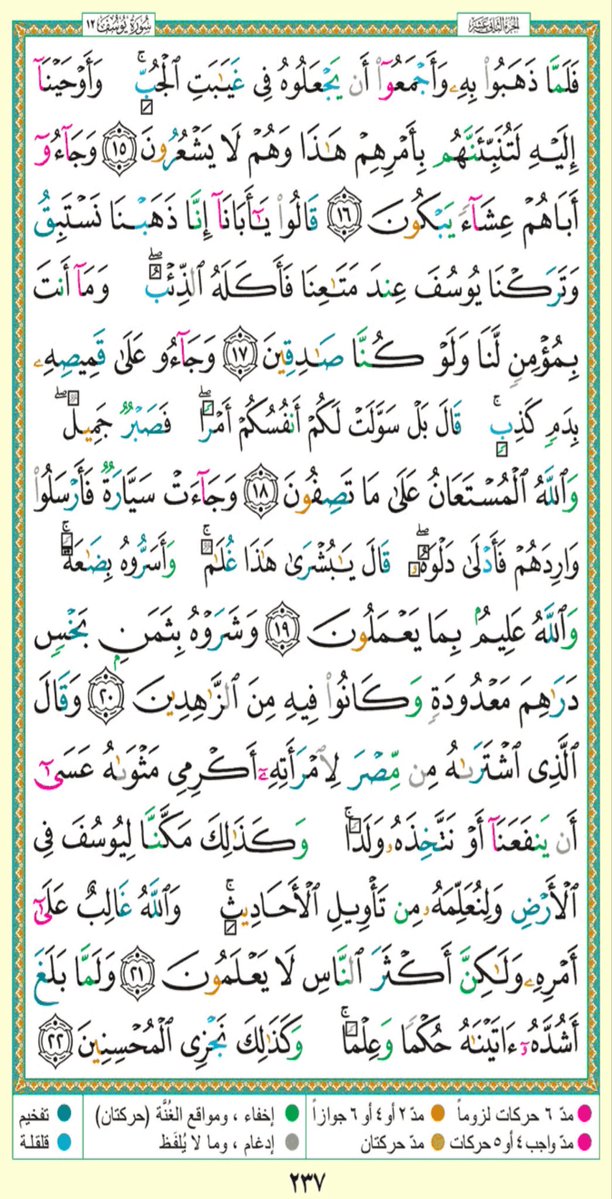 الجزء الثاني عشر سورة يوسف ١٢
فَلَمَّا ذَهَبُوا۟ بِهِۦ وَأَجْمَعُوٓا۟ أَن يَجْعَلُوهُ فِى غَيَـٰبَتِ ٱلْجُبِّ ۚ وَأَوْحَيْنَآ
إِلَيْهِ لَتُنَبِّئَنَّهُم بِأَمْرِهِمْ هَـٰذَا وَهُمْ لَا يَشْعُرُونَ ١٥ وَجَآءُوٓ
أَبَاهُمْ عِشَآءً يَبْكُونَ ١٦ قَالُوا۟ يَـٰٓأَبَانَآ إِنَّا ذَهَبْنَا نَسْتَبِقُ
وَتَرَكْنَا يُوسُفَ عِندَ مَتَـٰعِنَا فَأَكَلَهُ ٱلذِّئْبُ ۖ وَمَآ أَنتَ
بِمُؤْمِنٍ لَّنَا وَلَوْ كُنَّا صَـٰدِقِينَ ١٧ وَجَآءُو عَلَىٰ قَمِيصِهِۦ
بِدَمٍ كَذِبٍ ۚ قَالَ بَلْ سَوَّلَتْ لَكُمْ أَنفُسُكُمْ أَمْرًا ۖ فَصَبْرٌ جَمِيلٌ ۖ
وَٱللَّهُ ٱلْمُسْتَعَانُ عَلَىٰ مَا تَصِفُونَ ١٨ وَجَآءَتْ سَيَّارَةٌ فَأَرْسَلُوا۟
وَارِدَهُمْ فَأَدْلَىٰ دَلْوَهُۥ ۖ قَالَ يَـٰبُشْرَىٰ هَـٰذَا غُلَـٰمٌ ۚ وَأَسَرُّوهُ بِضَـٰعَةً ۚ
وَٱللَّهُ عَلِيمٌۢ بِمَا يَعْمَلُونَ ١٩ وَشَرَوْهُ بِثَمَنٍۭ بَخْسٍ
دَرَٰهِمَ مَعْدُودَةٍ وَكَانُوا۟ فِيهِ مِنَ ٱلزَّٰهِدِينَ ٢٠ وَقَالَ
ٱلَّذِى ٱشْتَرَىٰهُ مِن مِّصْرَ لِٱمْرَأَتِهِۦٓ أَكْرِمِى مَثْوَىٰهُ عَسَىٰٓ
أَن يَنفَعَنَآ أَوْ نَتَّخِذَهُۥ وَلَدًا ۚ وَكَذَٰلِكَ مَكَّنَّا لِيُوسُفَ فِى
ٱلْأَرْضِ وَلِنُعَلِّمَهُۥ مِن تَأْوِيلِ ٱلْأَحَادِيثِ ۚ وَٱللَّهُ غَالِبٌ عَلَىٰٓ
أَمْرِهِۦ وَلَـٰكِنَّ أَكْثَرَ ٱلنَّاسِ لَا يَعْلَمُونَ ٢١ وَلَمَّا بَلَغَ
أَشُدَّهُۥٓ ءَاتَيْنَـٰهُ حُكْمًا وَعِلْمًا ۚ وَكَذَٰلِكَ نَجْزِى ٱلْمُحْسِنِينَ ٢٢
مدّ ٦ حركات لزوماً مدّ ٢ أو ٤ أو ٦ جوازاً إخفاء، ومواقع الغُنَّة (حركتان) تفخيم
مدّ واجب ٤ أو ٥ حركات مدّ حركتان إدغام، وما لا يُلفَظ قلقلة
٢٣٧